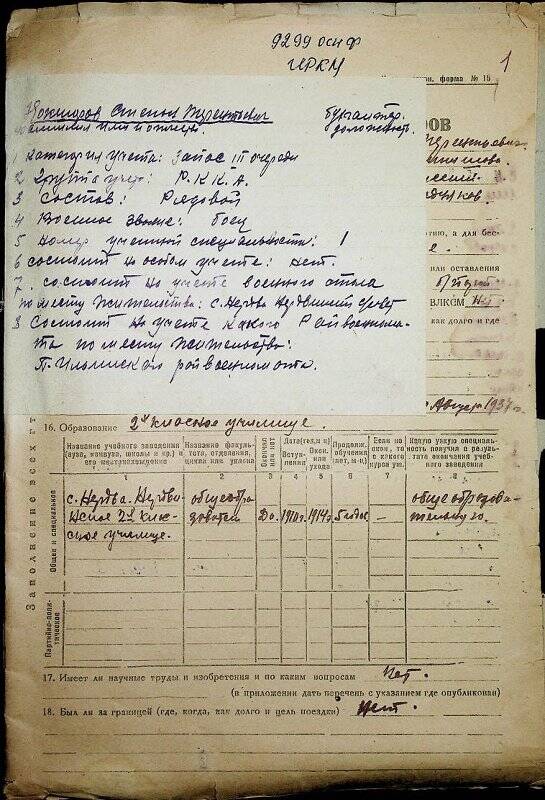 9299 осиф
ИРКМ
1
форма № 15
Степан Терентьевич
бухгалтер.
фамилия имя и отчество.
должность.
ОВ
1 Категория учета: Запас III очереди
2 Группа учет: Р.К.К.А.
3 Состав: Рядовой
4 Военное звание: боец
5 Номер учетной специальности: 1
6 состоит на особом учете: нет.
7. состоит на учете военного стола
по месту жительства: с. Нердва Нердвинский совет
8 Состоит на учете какого Райвоенкома-
та по месту жительства:
П-Ильинского райвоенкомата.
а для бес-
или оставления
ВЛКСМ
как долго и где
Август 1937 г.
16. Образование 2х класное училище.
Заполнение всех гр
Название учебного заведения (вуза, комвуза, школы и пр.) и его местонахождение
Название факультета, отделения, цикла или уклона
Окончил или нет
Дата (год, м-ц)
Вступления
Окон. или ухода
Продолж. обучения (лет, м-ц)
Если не окон., то с какого курса ушел
Какую узкую специальность получил в результате окончания учебного заведения
1 2 3 4 5 6 7 8
Общее и специальное
с. Нердва. Нердвинское 2х классное училище.
общеобразовател
Да.
1910 г.
1914 г.
5 годов
–
общеобразовательную.
Партийно-политическое
17. Имеет ли научные труды и изобретения и по каким вопросам Нет.
(в приложении дать перечень с указанием где опубликован)
18. Был ли за границей (где, когда, как долго и цель поездки) Нет.